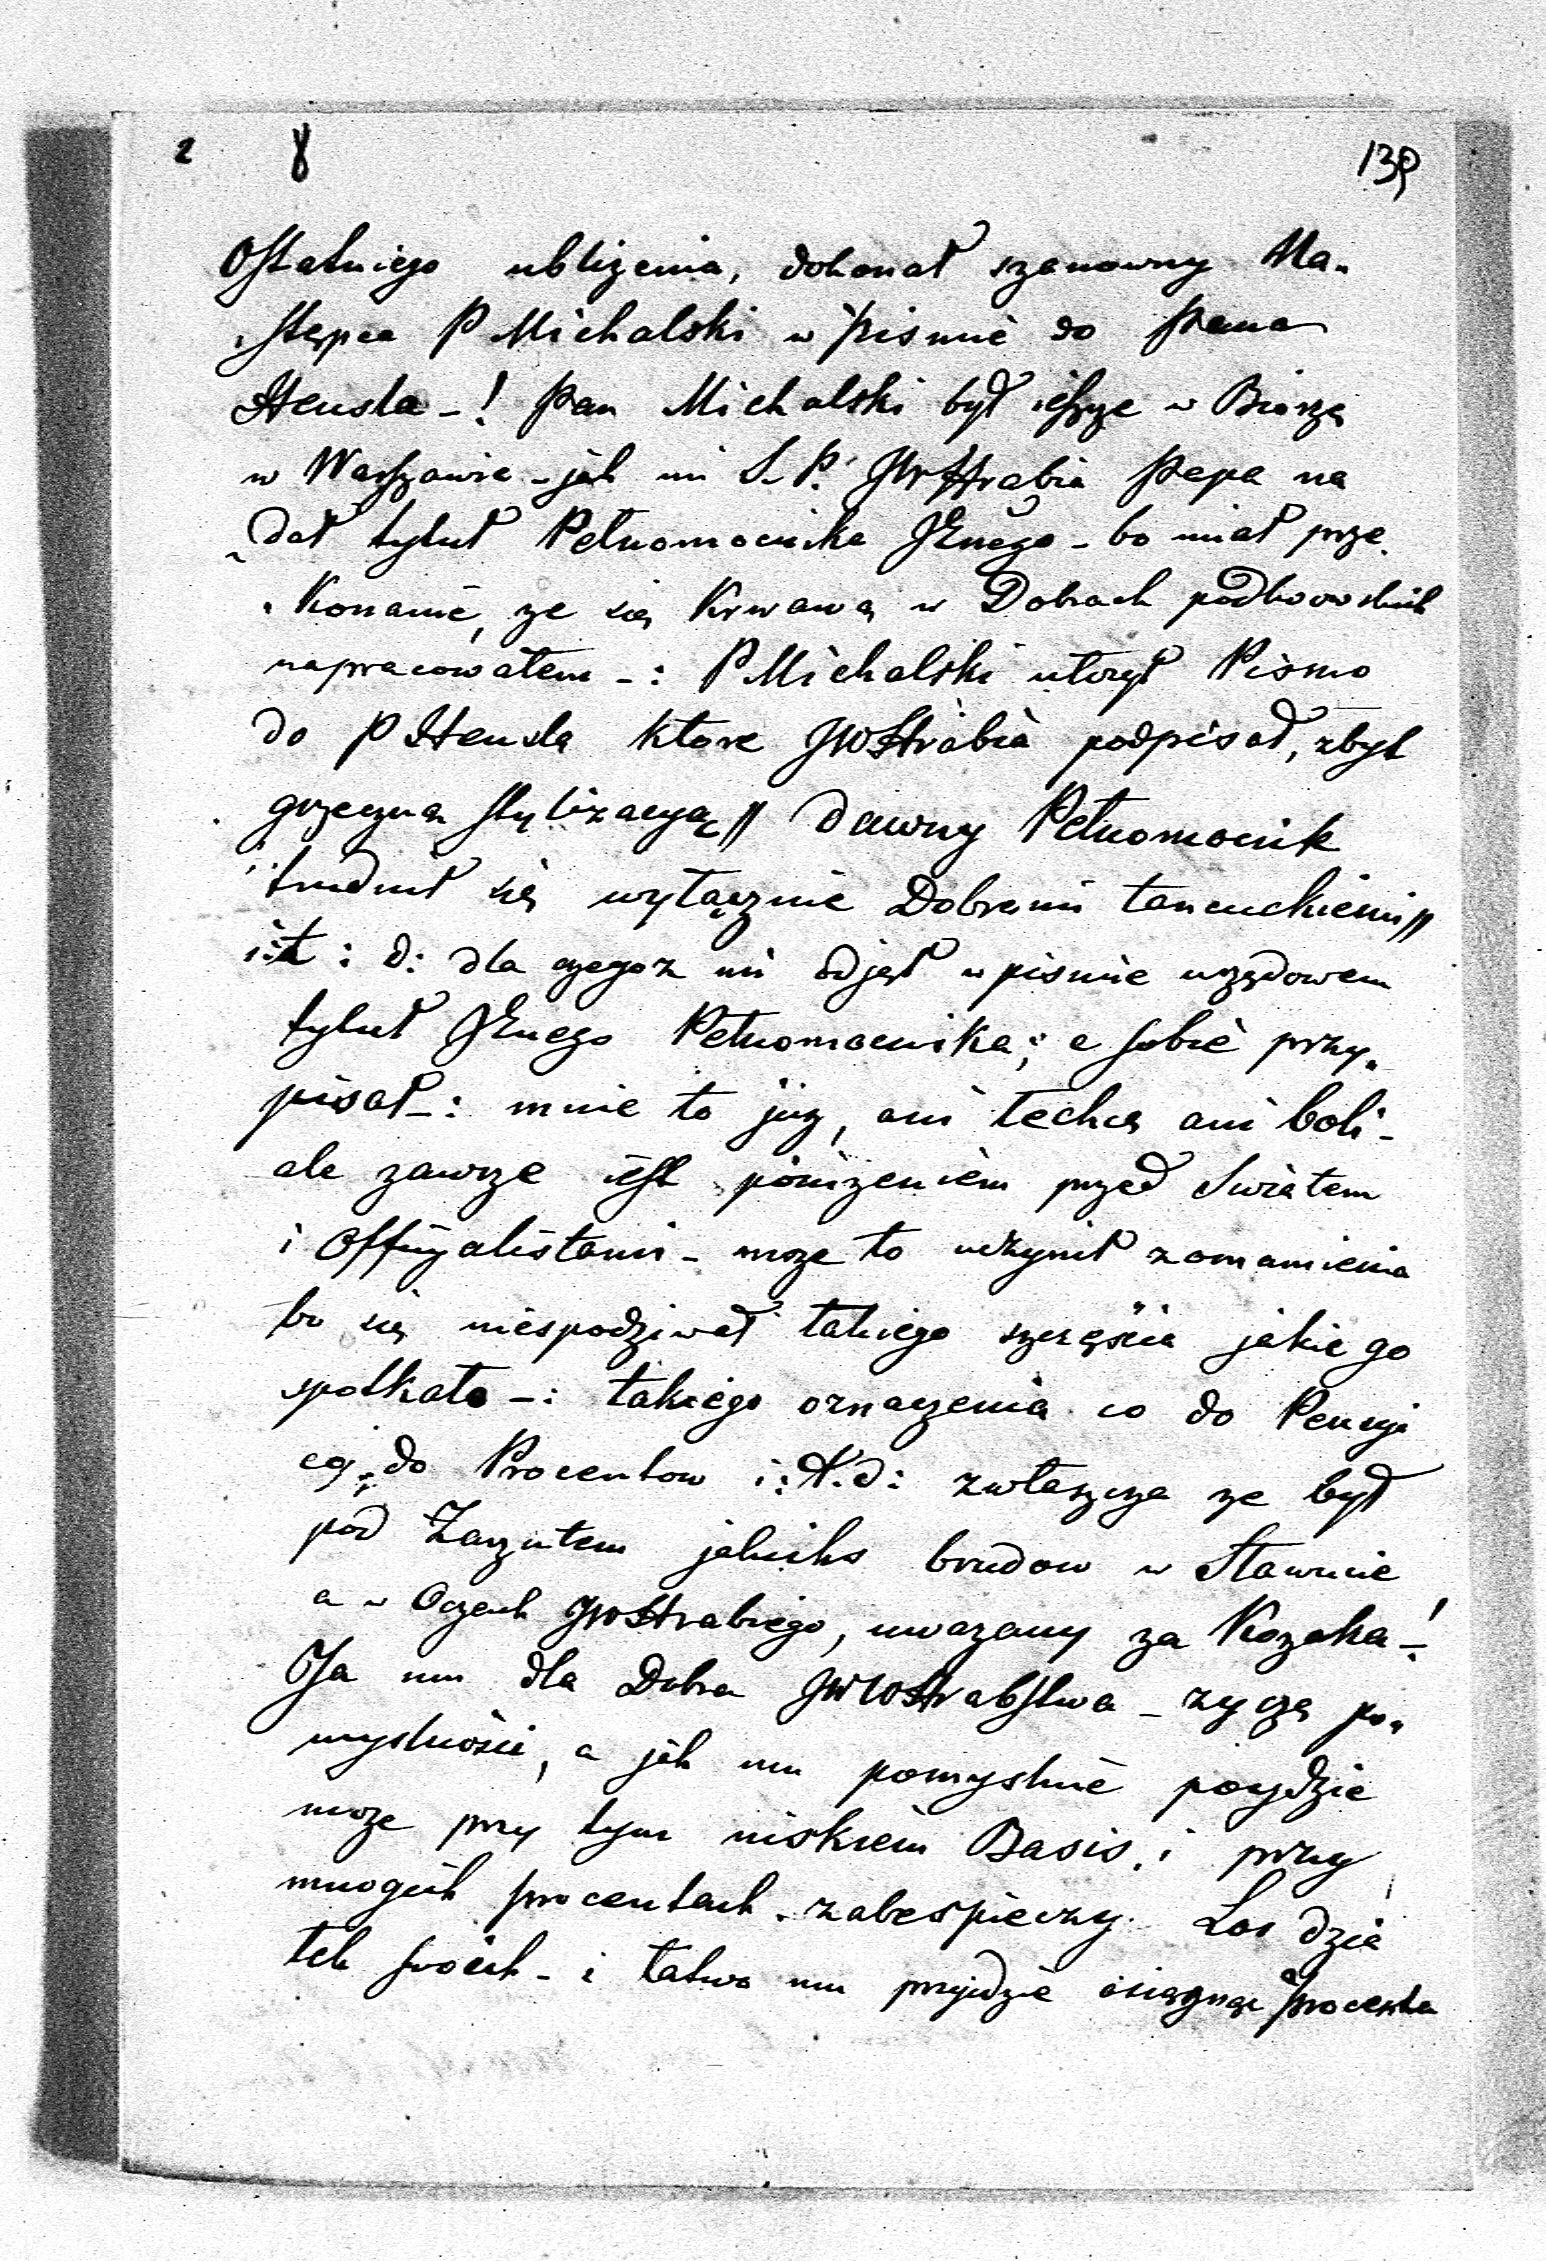 2 8 139
Ostatniego ubliżenia, dokonał szanowny Na„
„stępca P Michalski w piśmie do Pana
Hensla -! Pan Michalski był ieszze w Biórzę
w Warszawie - jak mi S. P. JW Hrabia Papa na
„dał tytuł Pełnomocnika JEnego - bo miał prze„
„konanie, ze się krwawą w Dobrach
napracowałem -: P Michalski utorył Pismo
do P Hensla ktore JWHrabia podpisał, zbyt
grzeczną stylizacyą // Dawny Pełnomocnik
trudnił się wyłącznie Dobrami łancuckiemi //
i: t: d: dla czegoz mi odjął w piśmie urzędowem
tytuł JEnego Pełnomocnika; a sobie przy„
pisał -: mnie to juz, ani łechcą ani boli -
ale zawsze iest poniżeniem przed Swiatem
i Officyalistami - moze to uczynił z omamienia
bo się niespodziwał takiego szczęścia jakie go
spotkało -: takiego oznaczenia co do Pensyi
co do Procentow i: t. d: zwłaszcza ze był
pod Zarzutem jakichs brudow w Sławucie
a w Oczach JWHrabiego, uwazany za Kozaka -!
Ja mu dla Dobra JWWHrabstwa - zyczę po„
myslności, a jak mu pomyslnie poydzie
moze przy tym niskiem Basis, i przy
mnogich procentach zabespieczy Los dzia
tek swoich - i łatwo mu przyidzie osiągnąc procenta